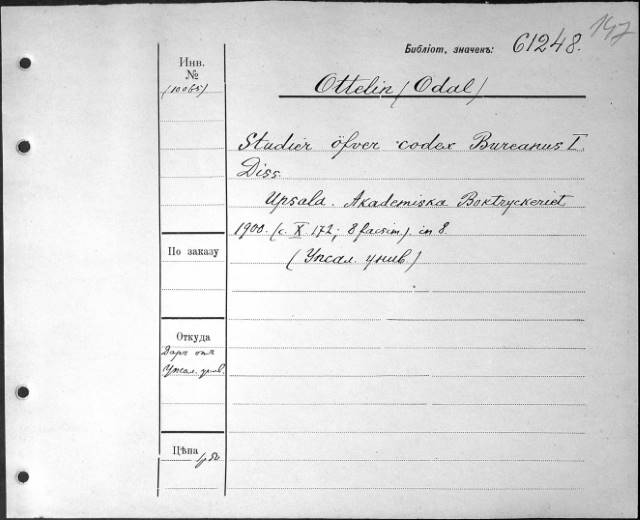 147
Библіот. значекъ: 61248.
Инв.
№
(10065)
Ottelin (Odal)
Studier öfver codex Bureanus I.
Diss.
Upsala. Akademiska Boktryckeriet
1900. (c. X. 172; 8 facsim.). in 8.
(Упсал. унив.)
По заказу
Откуда
Даръ отъ
Упсал. унив.
Цѣна